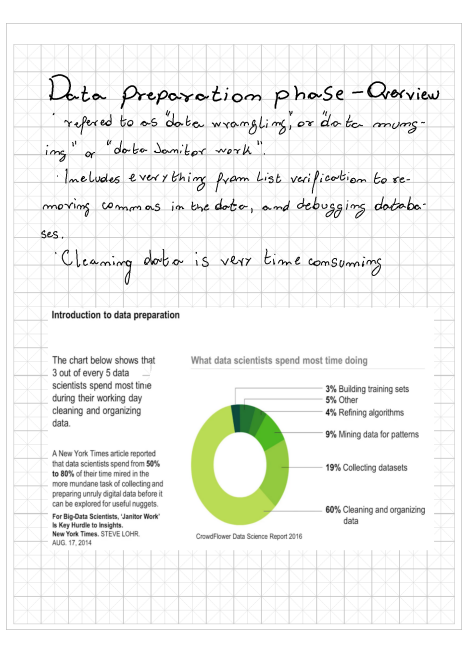 Data preparation phase - Overview
· refered to as "data wrangling", or "data mung-
ing" or "data Janitor work".
· Includes everything from List verification to re-
moving commas in the data, and debugging databa-
ses.
· Cleaning data is very time consuming
Introduction to data preparation
The chart below shows that
3 out of every 5 data
scientists spend most time
during their working day
cleaning and organizing
data.
A New York Times article reported
that data scientists spend from 50%
to 80% of their time mired in the
more mundane task of collecting and
preparing unruly digital data before it
can be explored for useful nuggets.
For Big-Data Scientists, 'Janitor Work'
Is Key Hurdle to Insights.
New York Times. STEVE LOHR.
AUG. 17, 2014
What data scientists spend most time doing
3% Building training sets
5% Other
4% Refining algorithms
9% Mining data for patterns
19% Collecting datasets
60% Cleaning and organizing
data
CrowdFlower Data Science Report 2016